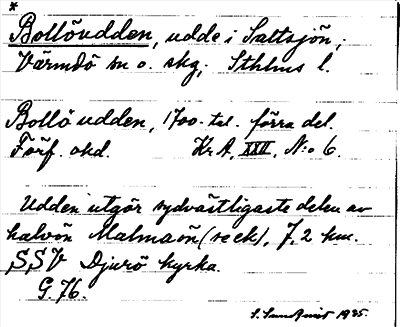 *
Bollöudden, udde i Saltsjön,
Värmdö sn o. skg, Sthlms l.
Bollö udden, 1700-tal. förra del.
Förf. okd. Kr. A, XXII, N:o 6.
Udden utgör sydvästligaste delen av
halvön Malmaön (se ek), 7,2 km.
SSV Djurö kyrka.
G. 76.
1935.